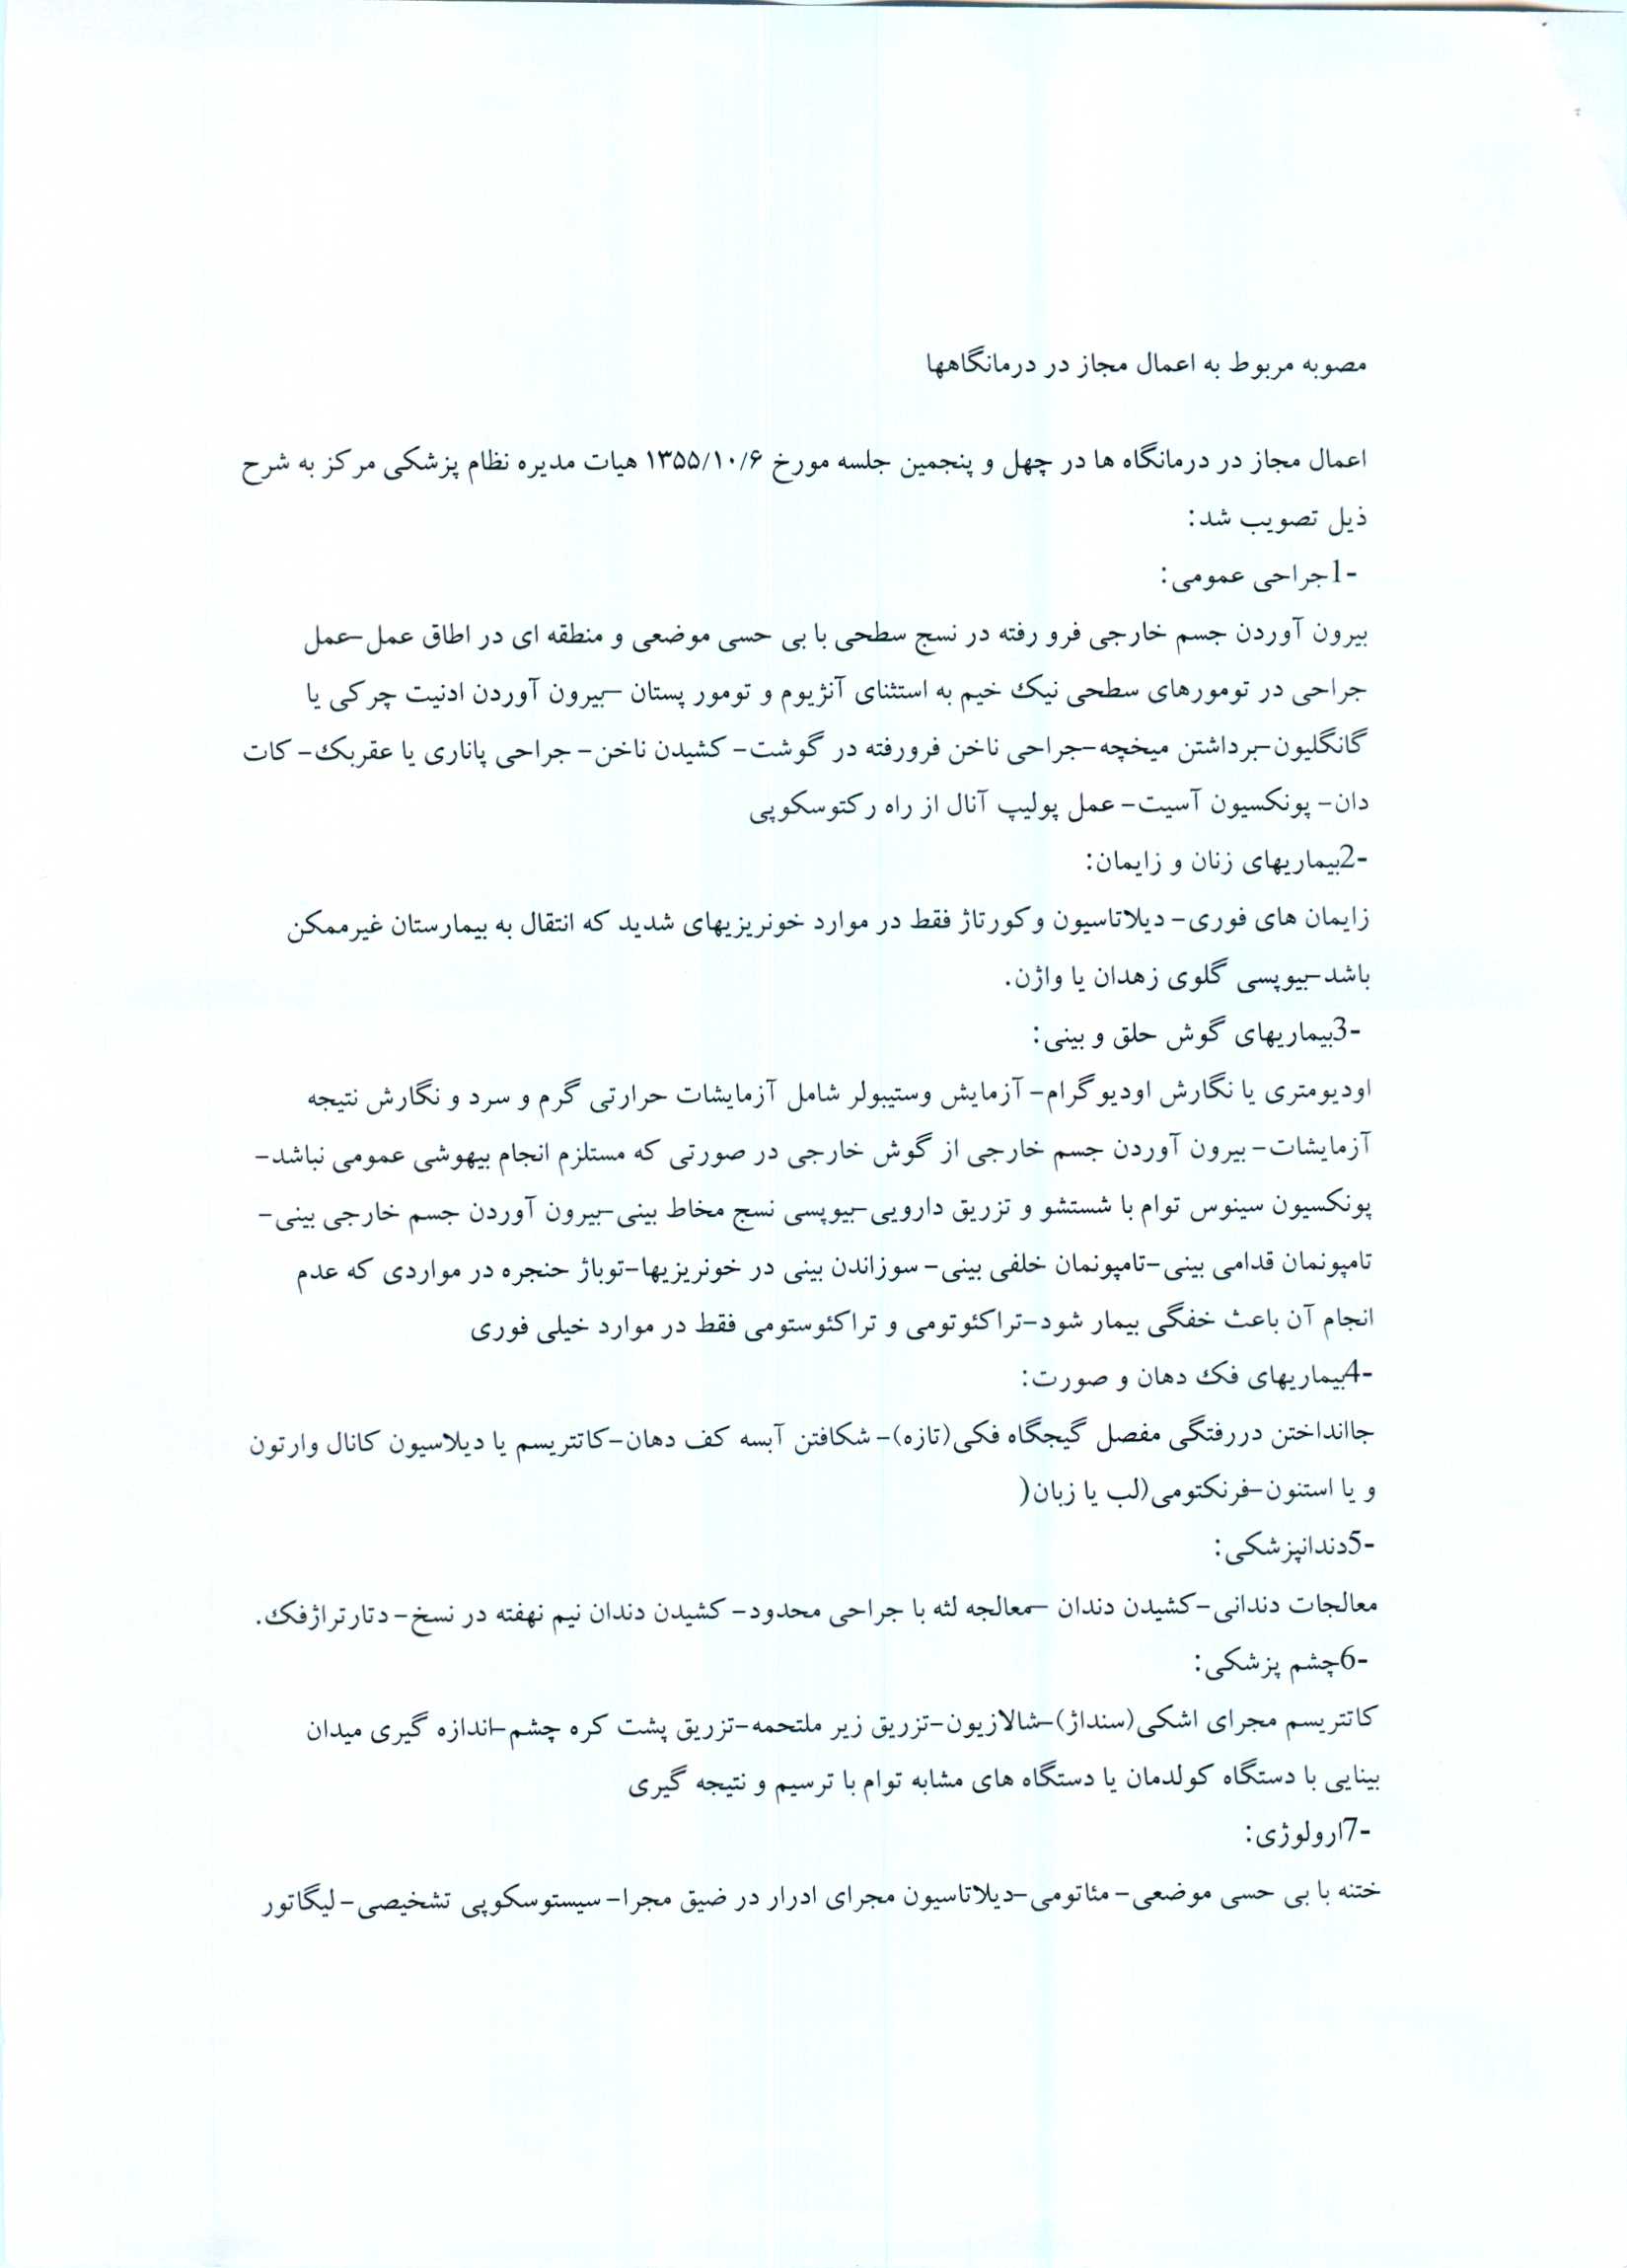 مصوبه مربوط به اعمال مجاز در درمانگاهها
اعمال مجاز در درمانگاه ها در چهل و پنجمین جلسه مورخ ۱۳۵۵/۱۰/۶ هیات مدیره نظام پزشکی مرکز به شرح
ذیل تصویب شد:
-1جراحی عمومی:
بیرون آوردن جسم خارجی فرو رفته در نسج سطحی با بی حسی موضعی و منطقه ای در اطاق عمل–عمل
جراحی در تومورهای سطحی نیک خیم به استثنای آنژیوم و تومور پستان –بیرون آوردن ادنیت چرکی یا
گانگلیون–برداشتن میخچه–جراحی ناخن فرورفته در گوشت– کشیدن ناخن– جراحی پاناری یا عقربک– کات
دان– پونکسیون آسیت– عمل پولیپ آنال از راه رکتوسکوپی
-2بیماریهای زنان و زایمان:
زایمان های فوری– دیلاتاسیون و کورتاژ فقط در موارد خونریزیهای شدید که انتقال به بیمارستان غیرممکن
باشد–بیوپسی گلوی زهدان یا واژن.
-3بیماریهای گوش حلق و بینی:
اودیومتری یا نگارش اودیوگرام– آزمایش وستیبولر شامل آزمایشات حرارتی گرم و سرد و نگارش نتیجه
آزمایشات– بیرون آوردن جسم خارجی از گوش خارجی در صورتی که مستلزم انجام بیهوشی عمومی نباشد–
پونکسیون سینوس توام با شستشو و تزریق دارویی–بیوپسی نسج مخاط بینی–بیرون آوردن جسم خارجی بینی–
تامپونمان قدامی بینی–تامپونمان خلفی بینی– سوزاندن بینی در خونریزیها–توباژ حنجره در مواردی که عدم
انجام آن باعث خفگی بیمار شود–تراکئوتومی و تراکئوستومی فقط در موارد خیلی فوری
-4بیماریهای فک دهان و صورت:
جاانداختن دررفتگی مفصل گیجگاه فکی(تازه)– شکافتن آبسه کف دهان–کاتتریسم یا دیلاسیون کانال وارتون
و یا استنون–فرنکتومی(لب یا زبان(
-5دندانپزشکی:
معالجات دندانی–کشیدن دندان –معالجه لثه با جراحی محدود– کشیدن دندان نیم نهفته در نسخ– دتارتراژفک.
-6چشم پزشکی:
کاتتریسم مجرای اشکی(سنداژ)–شالازیون–تزریق زیر ملتحمه–تزریق پشت کره چشم–اندازه گیری میدان
بینایی با دستگاه کولدمان یا دستگاه های مشابه توام با ترسیم و نتیجه گیری
-7ارولوژی:
ختنه با بی حسی موضعی– مئاتومی–دیلاتاسیون مجرای ادرار در ضیق مجرا– سیستوسکوپی تشخیصی– لیگاتور